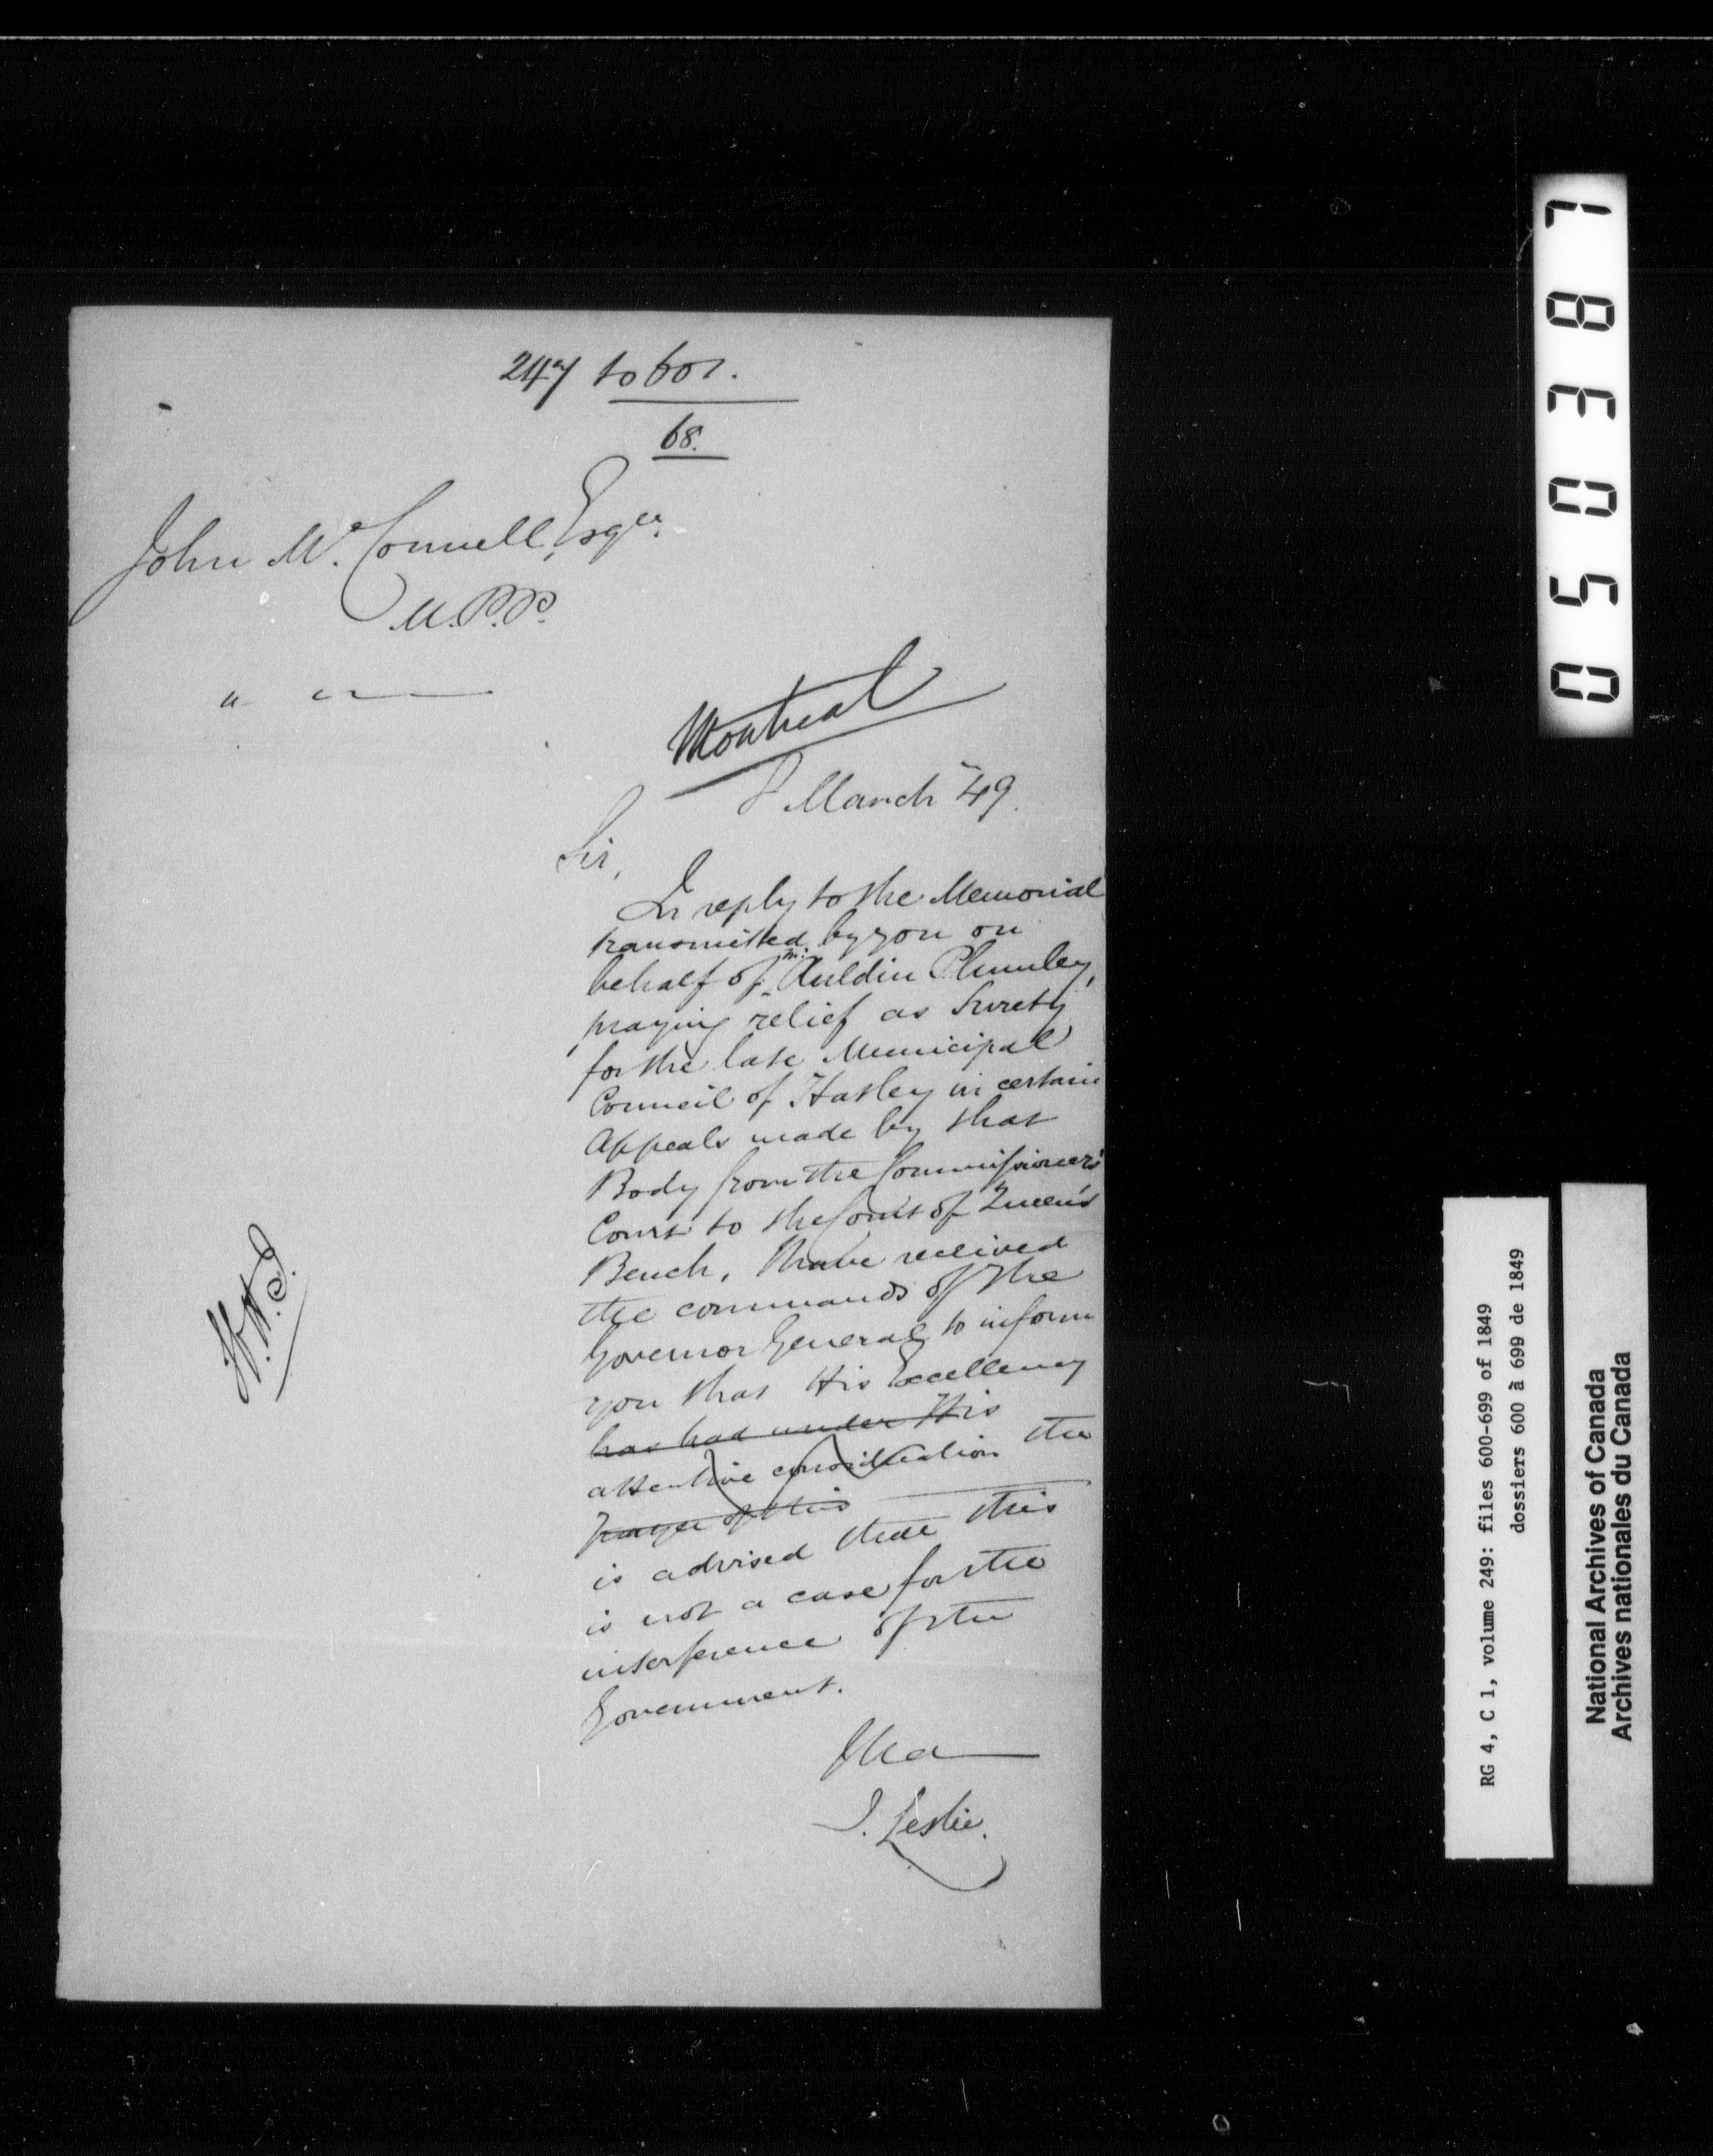 247 to 601.
68.
John McConnell, Esqre.
M.P.P.
" "
Montreal
8 March '49.
Sir,
In reply to the Memorial
transmitted by you on
behalf of Mr. Auldin Plumley,
praying relief as Surety
for the late Municipal
Council of Hatley in certain
Appeals made by that
Body from the Commissioners'
Court to the Court of Queen's
Bench, I have received
the commands of the
Governor General to inform
you that His Excellency
has had under His
attentive consideration the
prayer of this
is advised that this
is not a case for the
interference of the
Government.
I ha
J. Leslie.
050387
RG 4, C 1, volume 249: files 600-699 of 1849
dossiers 600 à 699 de 1849
National Archives of Canada
Archives nationales du Canada